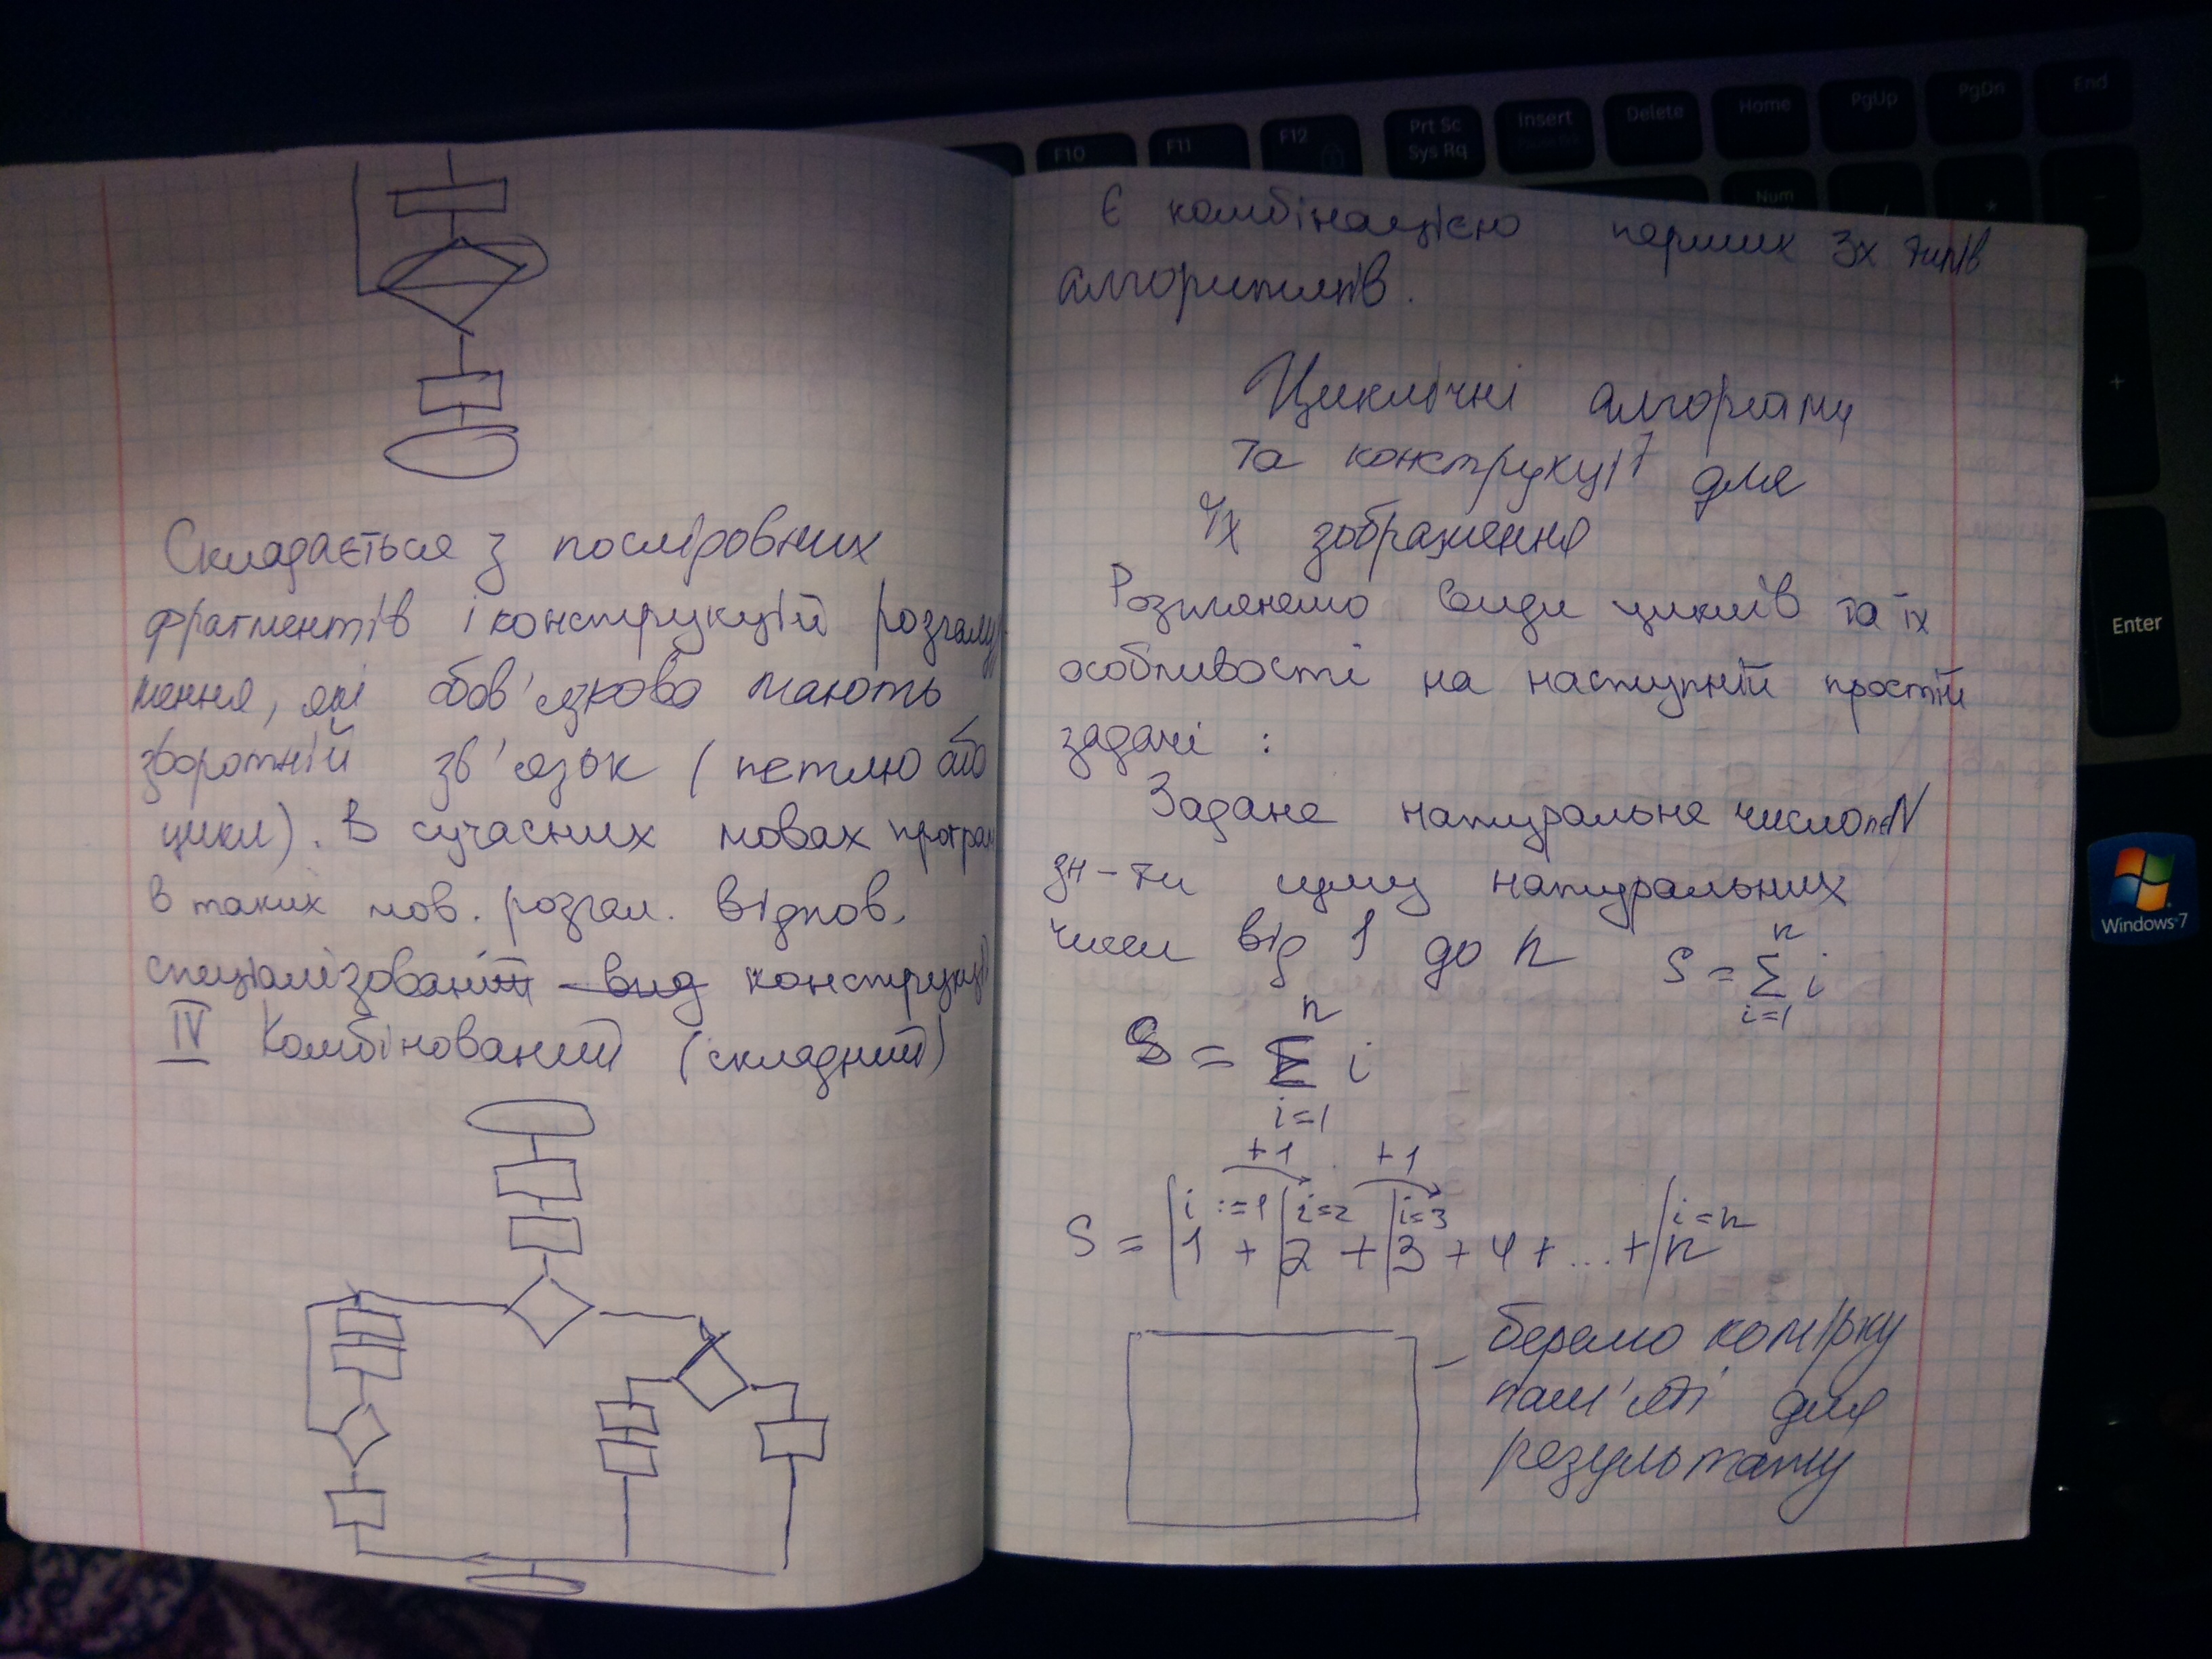 Складається з послідовних
фрагментів і конструкцій розгалу
ження, які обов'язково мають
зворотній зв'язок (петлю або
цикл). В сучасних мовах програм
в таких мов. розгал. відпов.
спеціалізований вид конструкції
IV Комбінований (складний)
Є комбінацією перших 3х типів
алгоритмів.
Циклічні алгоритми
та конструкції для
їх зображення
Розглянемо види циклів та їх
особливості на наступній простій
задачі :
Задане натуральне число n∈N
зн-ти суму натуральних
чисел від 1 до n S = n Σ i=1 i
S = n Σ i=1 i
+1 +1
i:=1 i=2 i=3 i=n
S = 1 + 2 + 3 + 4 + ... + n
– беремо комірку
пам'яті для
результату
F10 F11 F12 Prt Sc Sys Rq Insert Delete Home PgUp PgDn End
Num * -
+
Enter
Windows 7